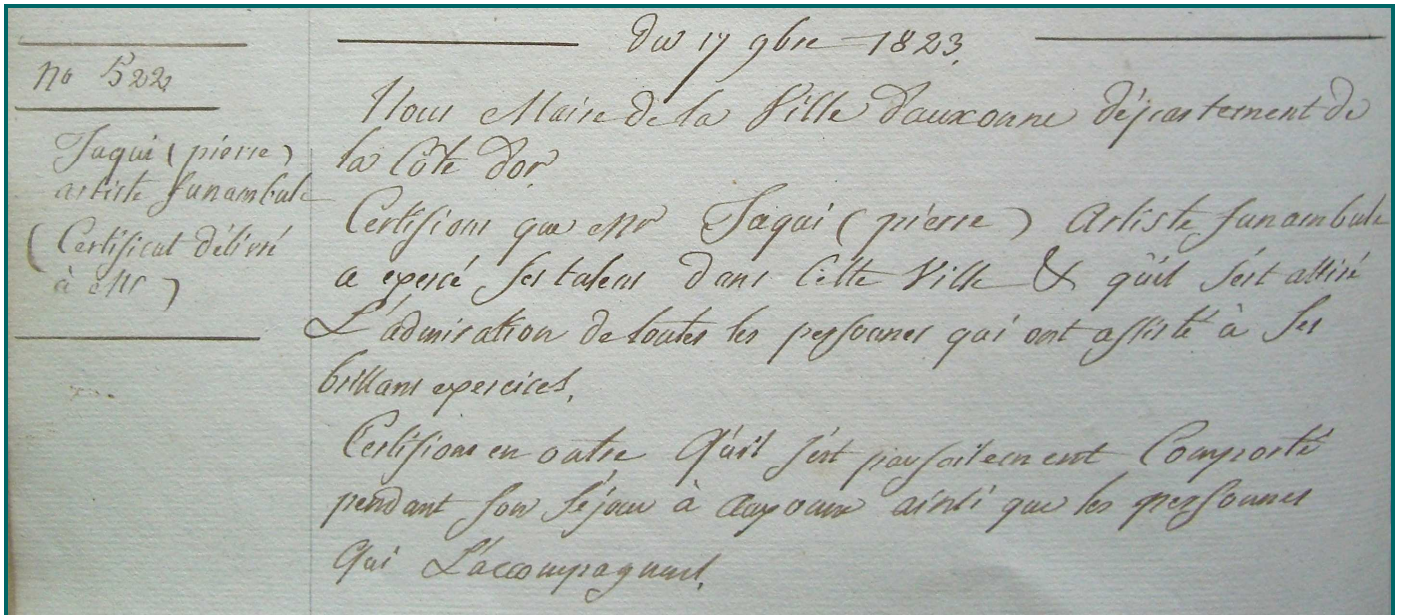 Du 17 9bre 1823.
no 522
Jaqui (pierre)
artiste funambule
(Certificat délivré
à Mr)
Nous Maire de la Ville d'auxonne département de
la Côte d'or
Certifions que Mr Jaqui (pierre) Artiste funambule
a exercé ses talens dans Cette Ville & qu'il s'est attiré
L'admiration de toutes les personnes qui ont assisté à Ses
brillans exercices.
Certifions en outre Qu'il s'est parfaitement Comporté
pendant son Séjour à Auxonne ainsi que les personnes
Qui L'accompagnent.